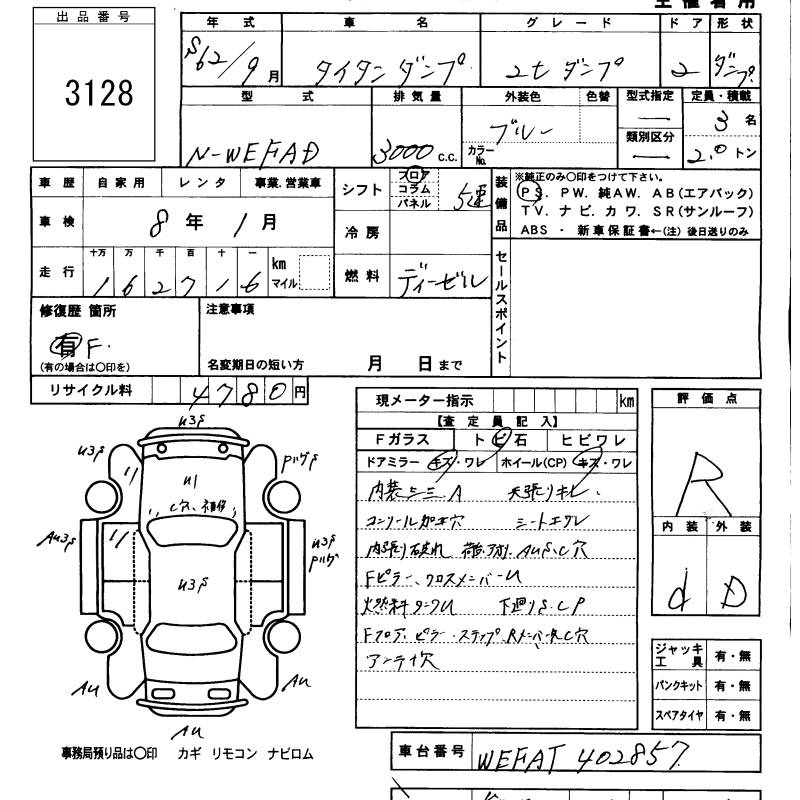 主催者用
出品番号
3128
年式 車名 グレード ドア 形状
S62/9月 タイタン ダンプ 2t ダンプ 2 ダンプ
型式 排気量 外装色 色替 型式指定 定員・積載
N-WEFAD 3000 c.c. ブルー カラーNo. ー 類別区分 ー 3名 2.0トン
車歴 自家用 レンタ 事業.営業車
車検 8年 1月
走行 十万 万 千 百 十 一
162716 km マイル
シフト フロア コラム パネル 5速
冷房
燃料 ディーゼル
装備品 ※純正のみ〇印をつけて下さい。
PS. PW. 純AW. AB(エアバック)
TV. ナビ. カワ. SR(サンルーフ)
ABS ・ 新車保証書←(注) 後日送りのみ
セールスポイント
修復歴 箇所
有 F.
(有の場合は〇印を)
注意事項
名変期日の短い方 月 日まで
リサイクル料 4780円
現メーター指示 km
【査定員記入】
Fガラス トビ石 ヒビワレ
ドアミラー キズ・ワレ ホイール(CP) キズ・ワレ
内装シミ.A 天張りキレ.
コンソール加工穴 シートエクレ
内張り破れ 荷台.アオリ.AUS.C穴
Fピラー、クロスメンバーU
燃料タンクU 下廻りS.C.P
Fフロア.ピラー.ステップ.Rメンバー末C穴
アンテナ穴
評価点
R
内装 外装
d D
ジャッキ工具 有・無
パンクキット 有・無
スペアタイヤ 有・無
U3S
U3S
U1
C穴、補修
U3S
AU3S
U3S
AU
AU
AU
事務局預り品は〇印 カギ リモコン ナビロム
車台番号 WEFAT 402857